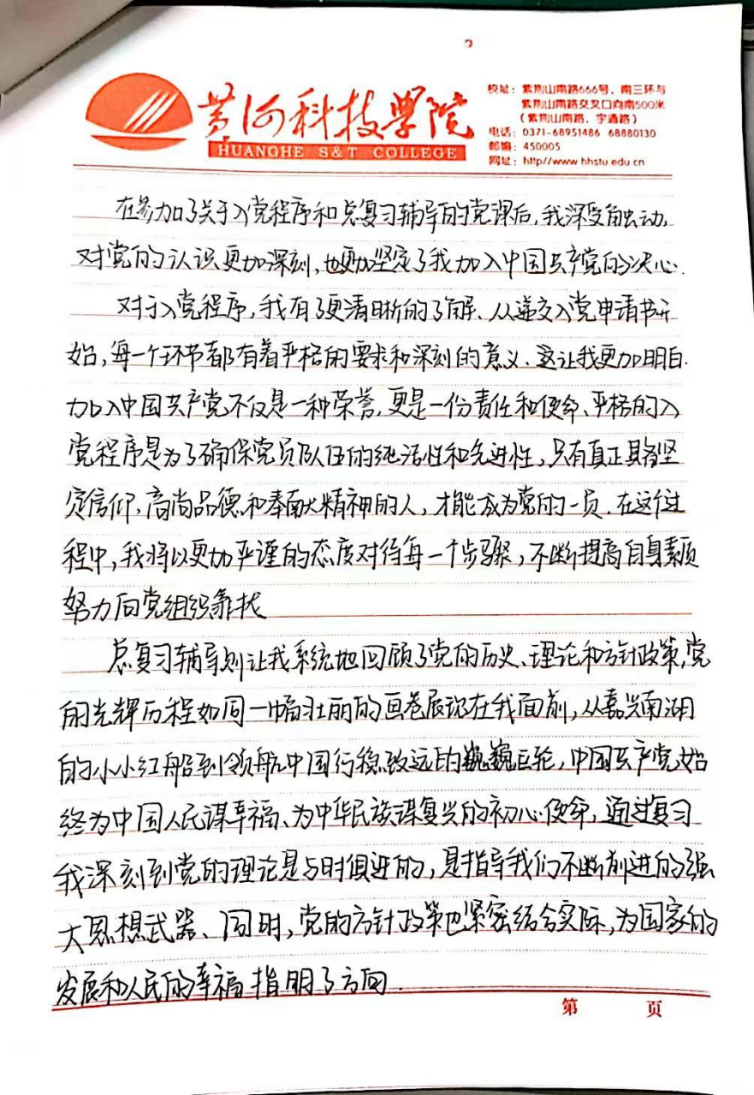 2
黄河科技学院
HUANGHE S&T COLLEGE
校址：紫荆山南路666号，南三环与
紫荆山南路交叉口向南500米
（紫荆山南路、宇通路）
电话：0371-68951486 68880130
邮编：450005
网址：http//www hhstu edu cn
在参加了关于入党程序和总复习辅导的党课后，我深受触动，
对党的认识更加深刻，也更加坚定了我加入中国共产党的决心.
对于入党程序，我有了更清晰的了解、从递交入党申请书开
始，每一个环节都有着严格的要求和深刻的意义、这让我更加明白.
加入中国共产党不仅是一种荣誉，更是一份责任和使命、严格的入
党程序是为了确保党员队伍的纯洁性和先进性，只有真正具备坚
定信仰、高尚品德和奉献精神的人，才能成为党的一员.在这个过
程中，我将以更加严谨的态度对待每一个步骤，不断提高自身素质
努力向党组织靠拢
总复习辅导则让我系统地回顾了党的历史、理论和方针政策，党
的光辉历程如同一幅壮丽的画卷展现在我面前，从嘉兴南湖
的小小红船到领航中国行稳致远的巍巍巨轮，中国共产党始
终为中国人民谋幸福、为中华民族谋复兴的初心使命，通过复习
我深刻到党的理论是与时俱进的，是指导我们不断前进的强
大思想武器、同时，党的方针政策也紧密结合实际，为国家的
发展和人民的幸福指明了方向.
第 页